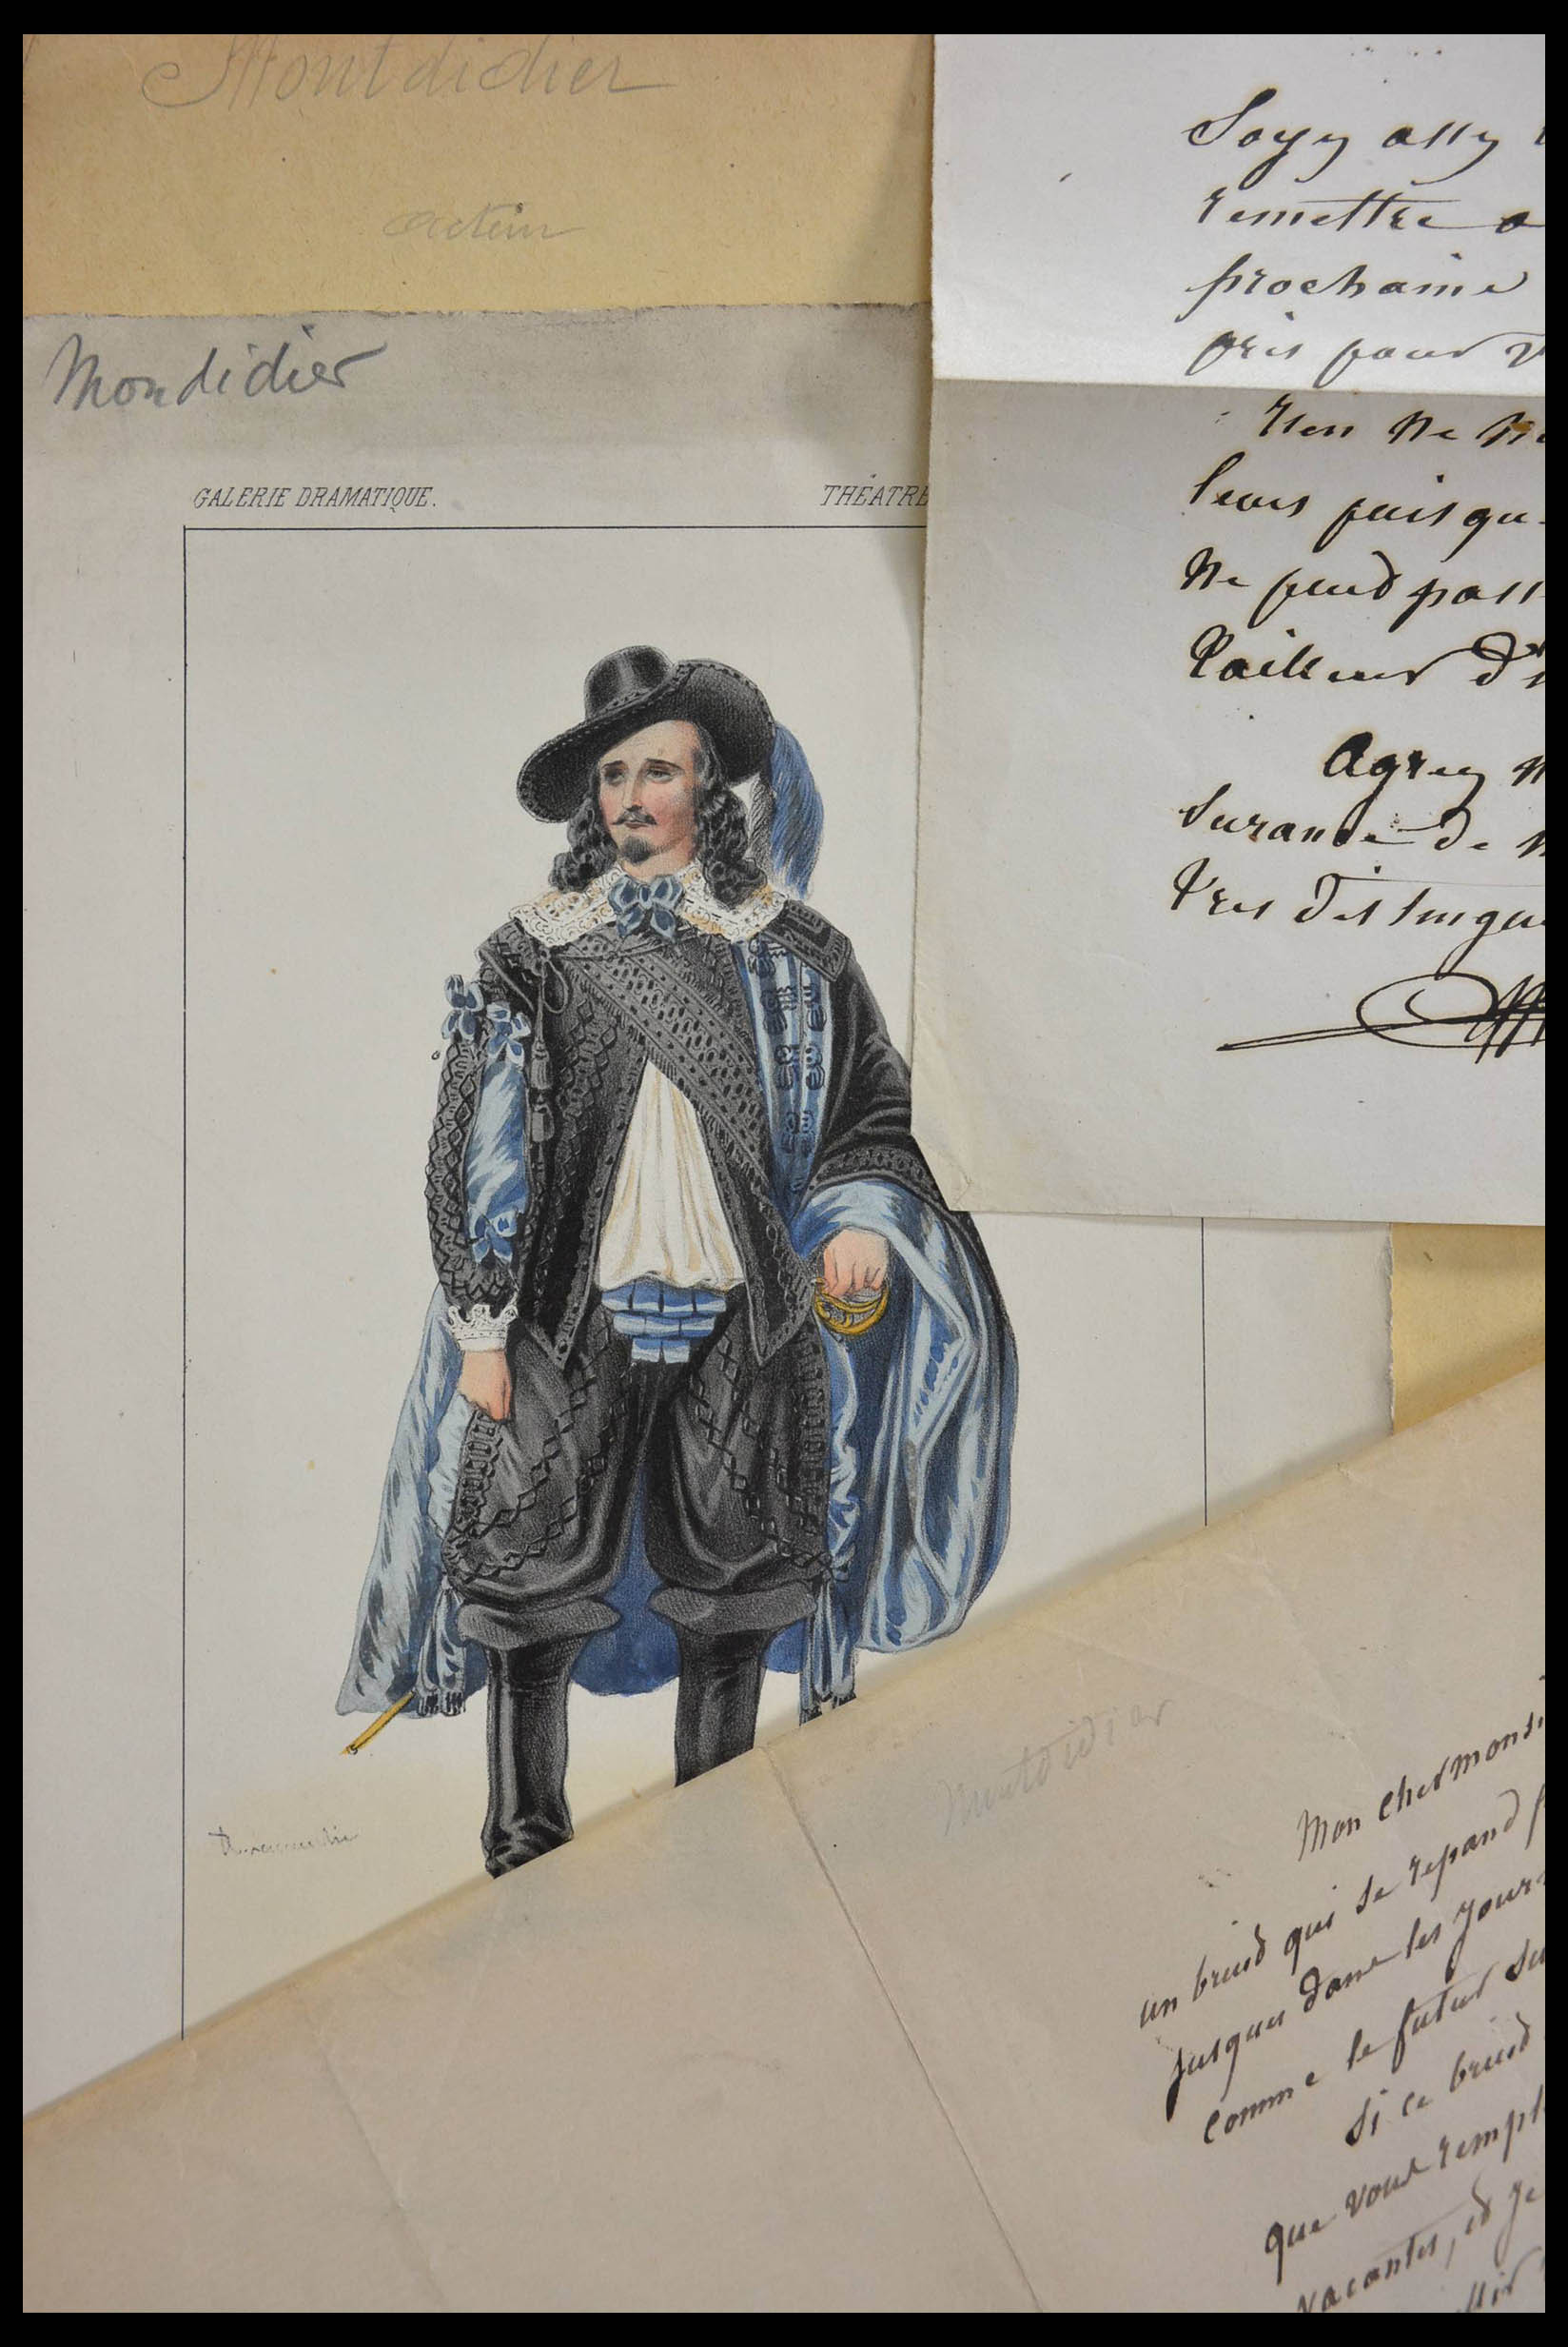 Montdidier
acteur
Mondidier
GALERIE DRAMATIQUE.
THÉATRE
Soyez assez
remettre a
prochaine
pris pour
rien ne
leurs puisqu
ne peud pass
tailleur d'
Agreez
surance de
tres distingu
Montdidier
Mon cher monsi
un bruid qui se repand
jusques dans les jour
comme le futur su
si ce bruid
que vous rempl
vacantes, ed je